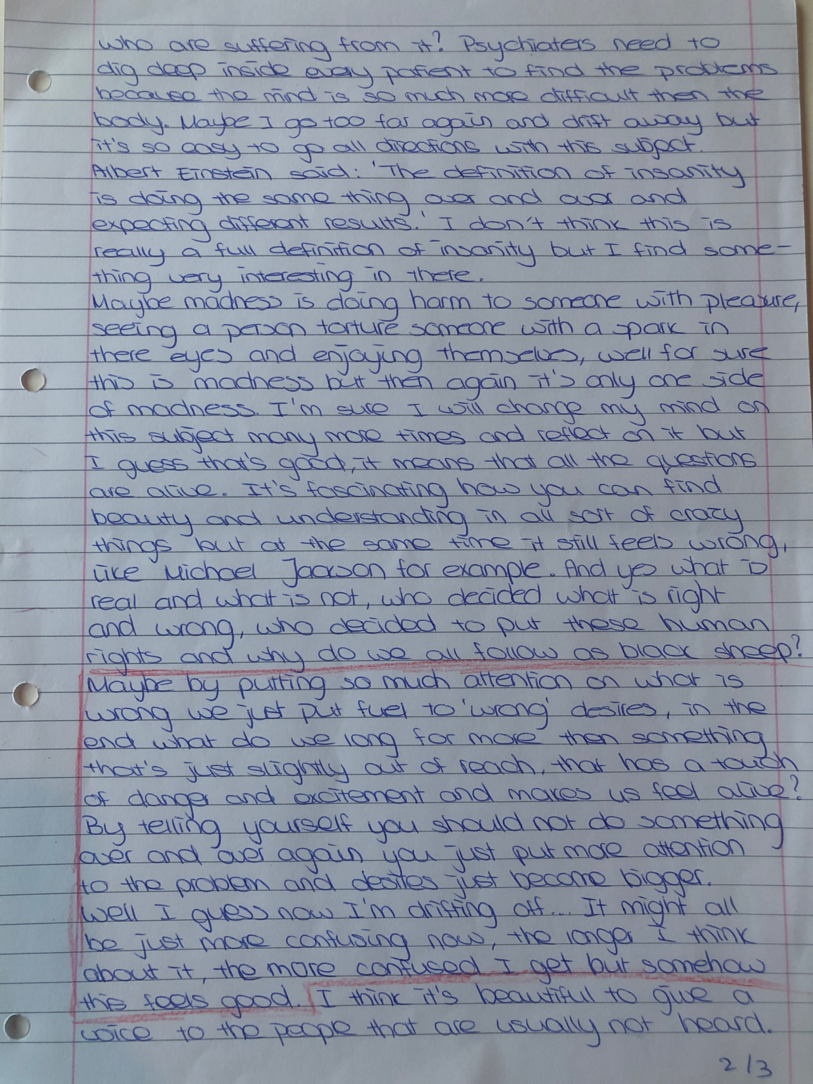 who are suffering from it? Psychiaters need to
dig deep inside every patient to find the problems
because the mind is so much more difficult then the
body. Maybe I go too far again and drift away but
it's so easy to go all directions with this subject.
Albert Einstein said: 'The definition of insanity
is doing the same thing over and over and
expecting different results.' I don't think this is
really a full definition of insanity but I find some-
thing very interesting in there.
Maybe madness is doing harm to someone with pleasure,
seeing a person torture someone with a spark in
there eyes and enjoying themselves, well for sure
this is madness but then again it's only one side
of madness. I'm sure I will change my mind on
this subject many more times and reflect on it but
I guess that's good, it means that all the questions
are alive. It's fascinating how you can find
beauty and understanding in all sort of crazy
things but at the same time it still feels wrong,
like Michael Jackson for example. And yes what is
real and what is not, who decided what is right
and wrong, who decided to put these human
rights and why do we all follow as black sheep?
Maybe by putting so much attention on what is
wrong we just put fuel to 'wrong' desires, in the
end what do we long for more then something
that's just slightly out of reach, that has a touch
of danger and excitement and makes us feel alive?
By telling yourself you should not do something
over and over again you just put more attention
to the problem and desires just become bigger.
Well I guess now I'm drifting off... It might all
be just more confusing now, the longer I think
about it, the more confused I get but somehow
this feels good. I think it's beautiful to give a
voice to the people that are usually not heard.
2/3